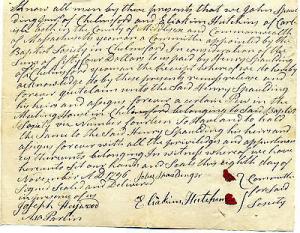 Know all men by these presents that we John Spau
lding of Chelmsford and Eliakim Hutchins of Carl
isle both in the County of Middlesex and Commonwealth
of Massachusetts yeoman a Committee appointed by the
Baptist Society in Chelmsford In consideration of the
Sum of Dollars to us paid by Henry Spaulding
of Chelmsford yeoman the Receipt whereof we do hereby
acknowledge do by these presents remise release and
forever quitclaim unto the Said Henry Spaulding
his heirs and assigns forever a certain Pew in the
Meeting house in Chelmsford belonging to the Baptist
Society To have and to hold
the Same to the Said Henry Spaulding his heirs and
assigns forever with all the priviledges and appurtenances
thereunto belonging In witness whereof we have
hereunto Set our hands and Seals this eighth day of
November A.D. 1796 John Spaulding
Signed Sealed and Delivered
in presence of us
Joseph Heywood
Asa Parlin
Eliakim Hutchins
Committee
for Said
Society